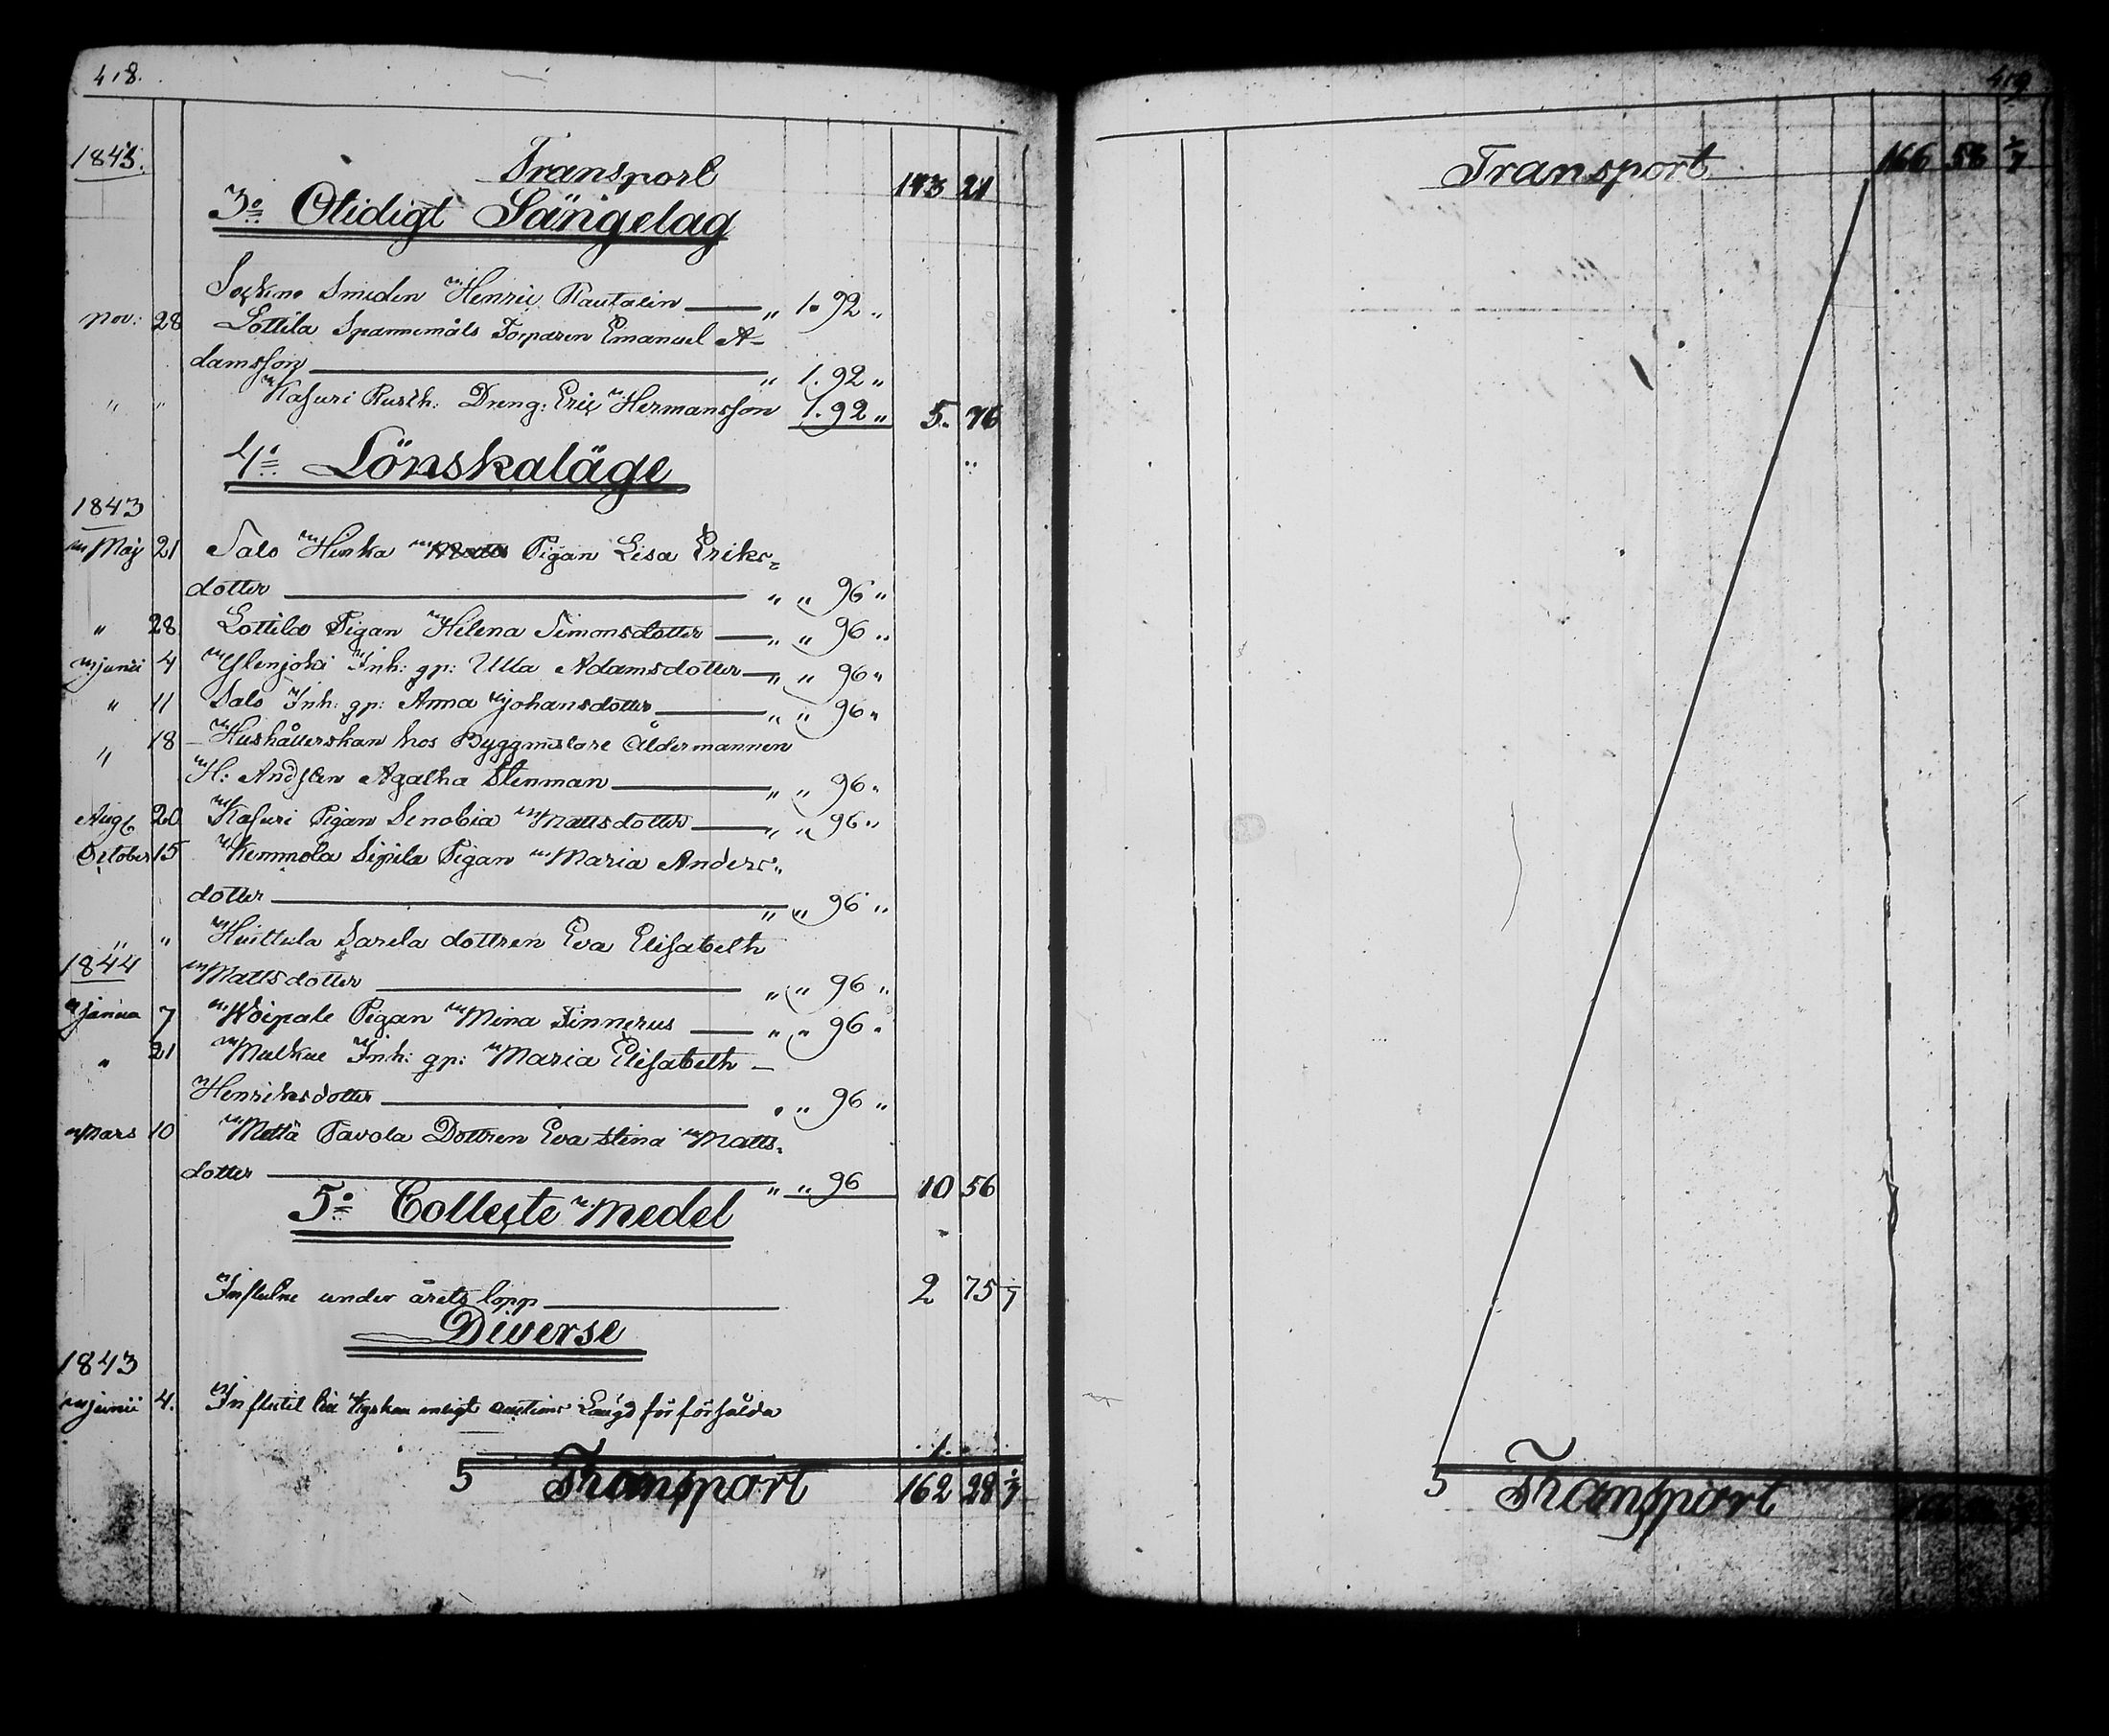 418.
1843. Transport 143 21
3:o Otidigt Sängelag
Sockne Smeden Henric Rautalin „ 1. 92 „
Nov: 28 Lottila Spannemåls Torparen Emanuel A-
damsson „ 1. 92 „
„ „ Kasuri Rusth: Dreng: Eric Hermansson 1. 92 „ 5. 76
4:o Lönskaläge
1843
Maj 21 Salo Heska Pigan Lisa Eriks-
dotter „ „ 96 „
„ 28 Lottila Pigan Helena Simonsdotter „ „ 96 „
Junii 4 Ylenjoki Inh: gp: Ulla Adamsdotter „ „ 96 „
„ 11 Salo Inh: gp: Anna Johansdotter „ „ 96 „
„ 18 Hushållerskan hos Byggmästare Åldermannen
H: Andsten Agatha Stenman „ „ 96 „
Aug: 20 Kasuri Pigan Senobia Mattsdotter „ „ 96 „
October 15 Kemmola Sipila Pigan Maria Anders-
dotter „ „ 96 „
„ „ Huittula Sarela dottren Eva Elisabeth
1844 Mattsdotter „ „ 96 „
Janua 7 Woipale Pigan Mina Finnerus „ „ 96 „
„ 21 Mulkue Inh: gp: Maria Elisabeth
Henriksdotter „ „ 96 „
Mars 10 Mettä Pavola Dottren Eva Stina Matts-
dotter „ „ 96 10 56
5:o Collecte Medel
Influtne under årets lopp 2 75 1/7
Diverse
1843
Junii 4. Influtit enligt auctions Längd för försålda
S Transport 162 28 1/7
419
Transport 166 58 1/7
S Transport